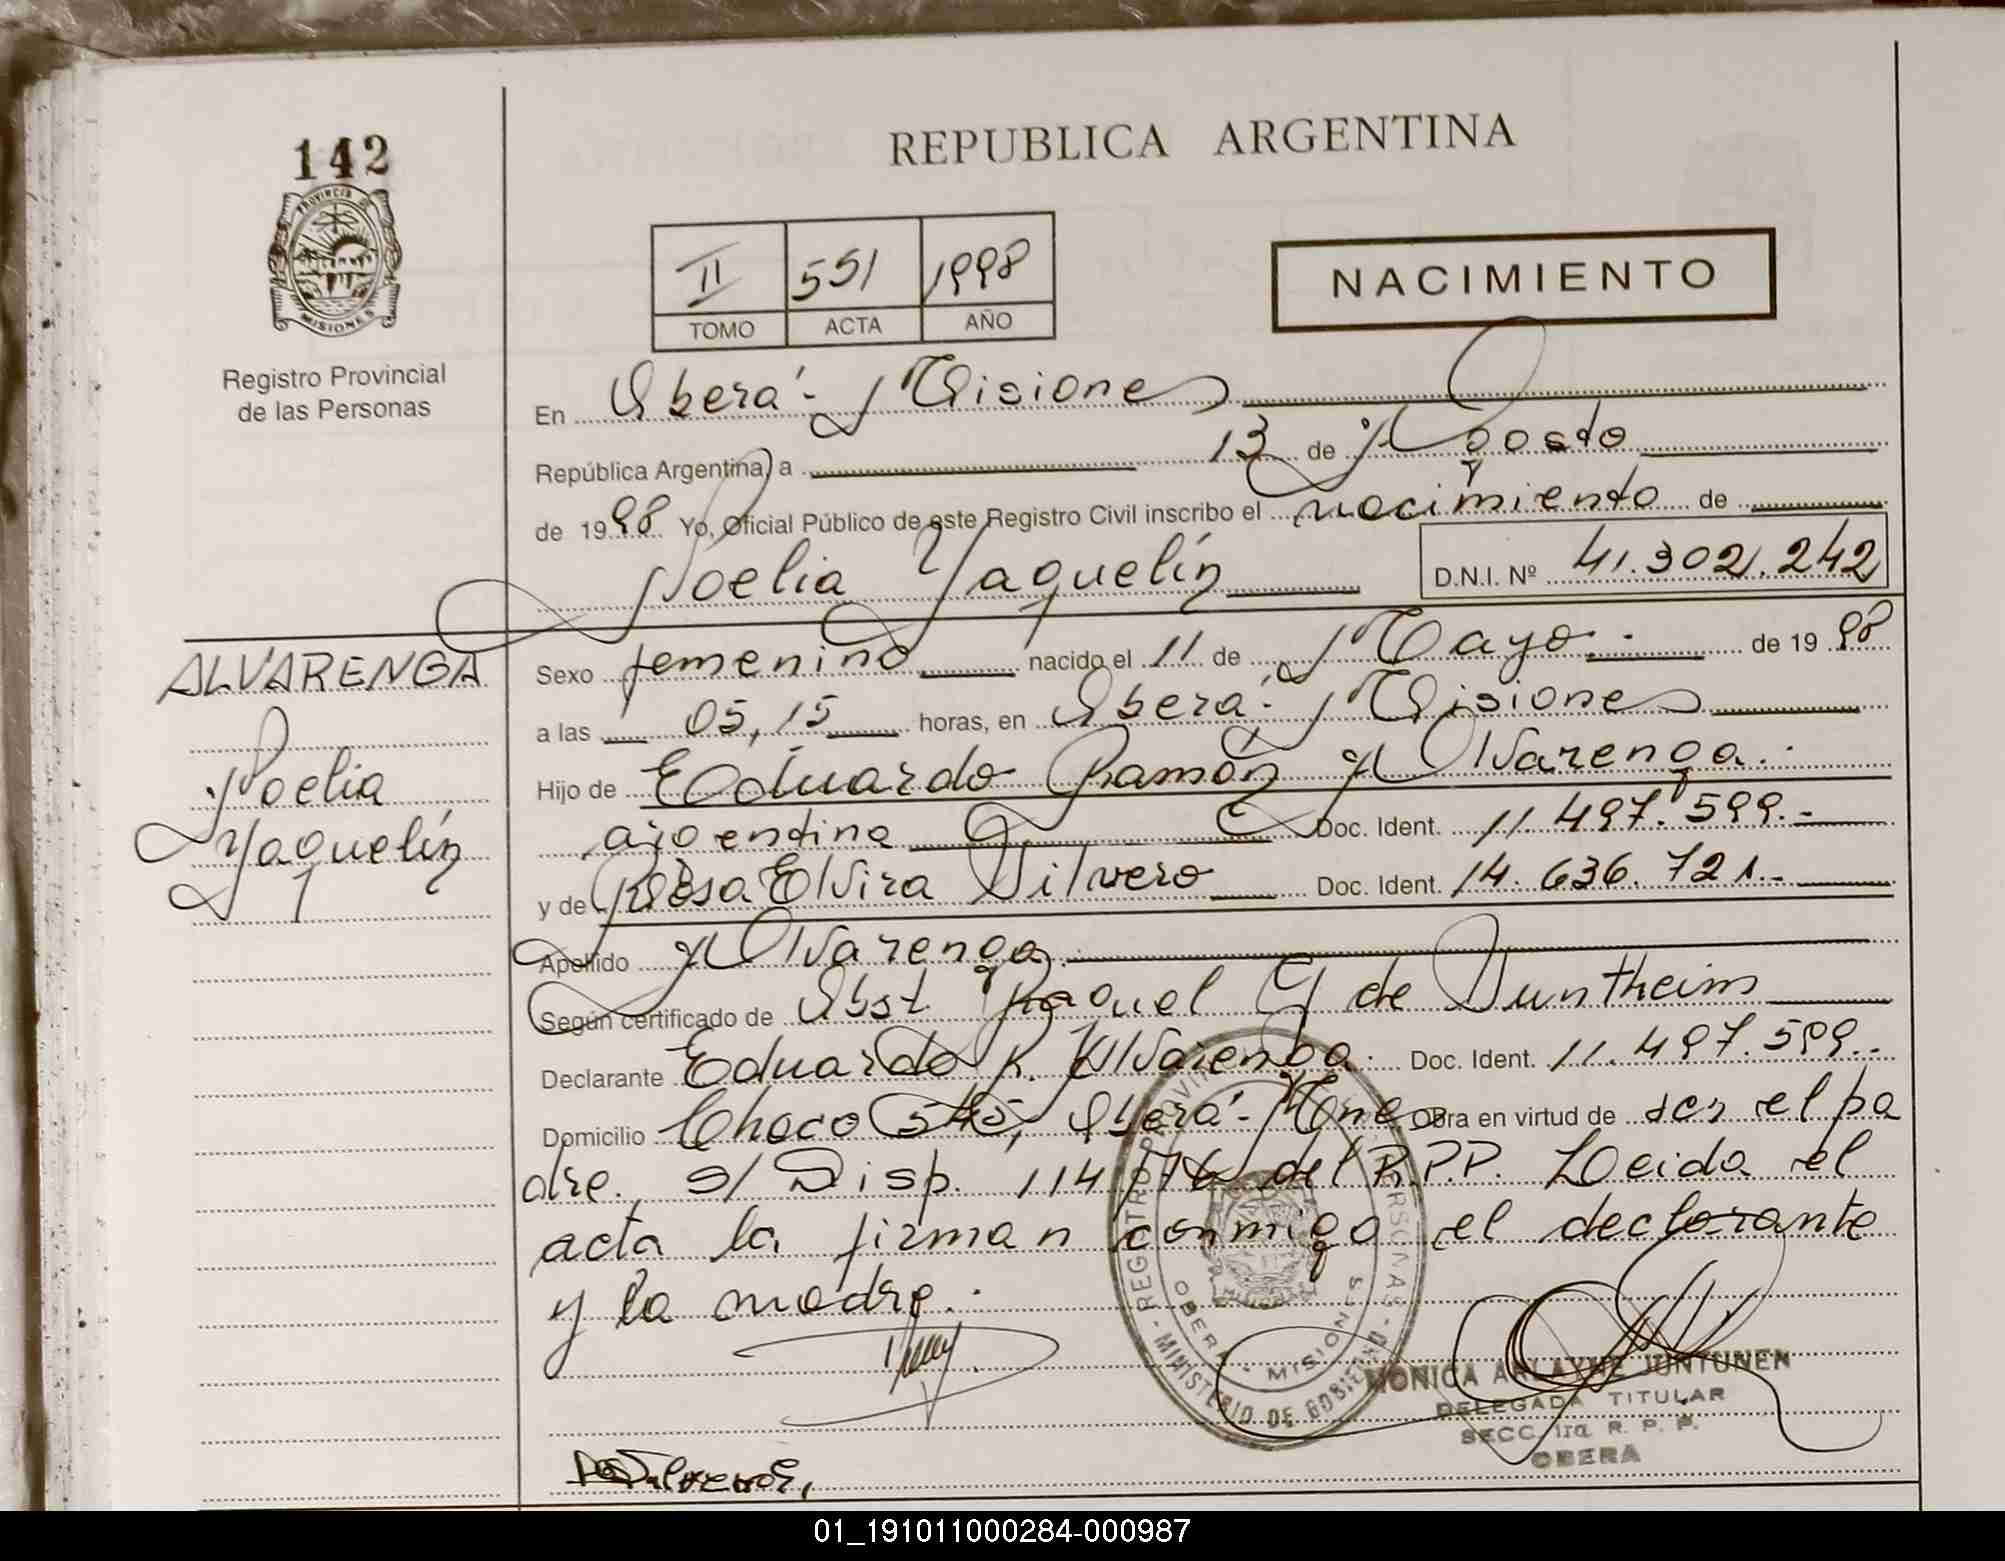 142
PROVINCIA DE
MISIONES
Registro Provincial
de las Personas
REPUBLICA ARGENTINA
II 551 1998
TOMO ACTA AÑO
NACIMIENTO
En Oberá - Misiones
República Argentina, a 13 de Agosto
de 1998 Yo, Oficial Público de este Registro Civil inscribo el nacimiento de
Noelia Yaquelín D.N.I. Nº 41.302.242
ALVARENGA
Noelia
Yaquelín
Sexo femenino nacido el 11 de Mayo.- de 1998
a las 05,15 horas, en Oberá - Misiones
Hijo de Eduardo Ramón Alvarenga.
argentina Doc. Ident. 11.497.599.-
y de Rosa Elvira Silvero Doc. Ident. 14.636.721.-
Apellido Alvarenga.
Según certificado de Obst Raquel G de Suntheim
Declarante Eduardo R. Alvarenga. Doc. Ident. 11.497.599.-
Domicilio Chaco 545, Oberá - Mnes Obra en virtud de ser el pa
dre. s/ Disp. 114/76 del R.P.P. Leida el
acta la firman conmigo el declarante
y la madre.-
REGISTRO PROVINCIAL DE LAS PERSONAS - MINISTERIO DE GOBIERNO -
OBERA - MISIONES
MONICA ARLAYNE JUNTUNEN
DELEGADA TITULAR
SECC. 1ra. R. P. P.
OBERA
01_191011000284-000987